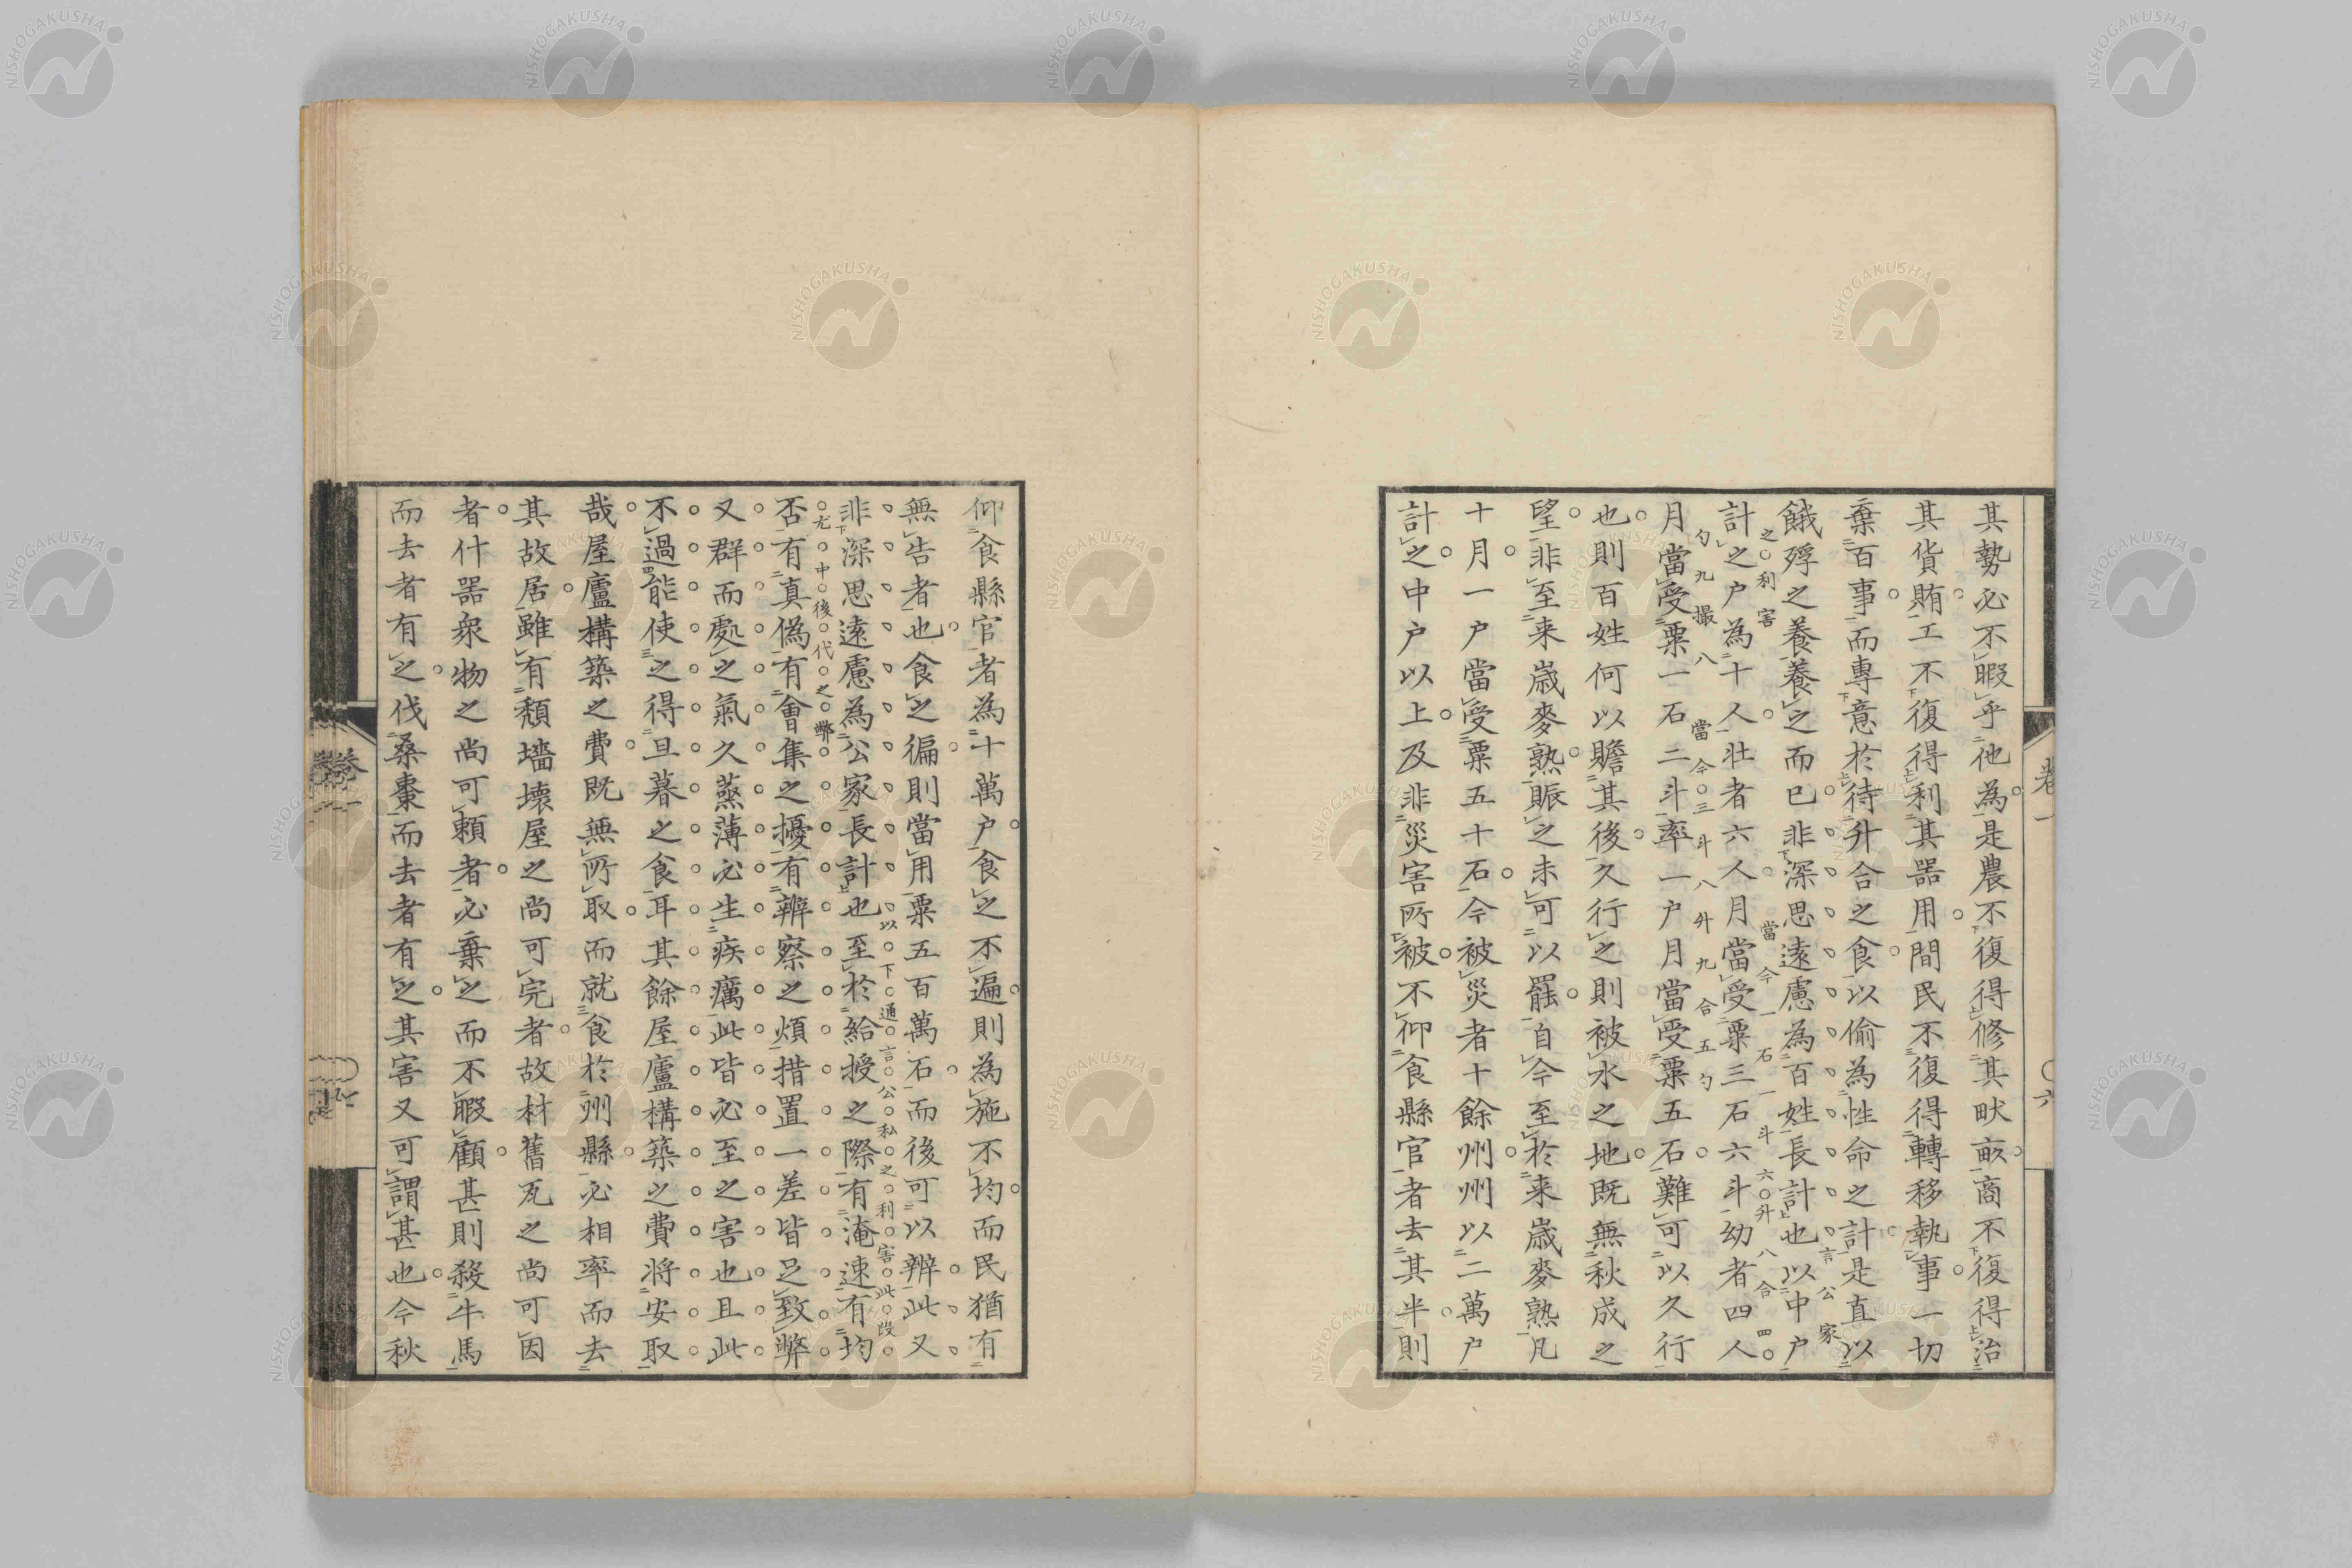 其勢必不暇乎他為是農不復得修其畎畝商不復得治
其貨賄工不復得利其器用間民不復得轉移執事一切
棄百事而專意於待升合之食以偷為性命之計是直以
言公家
餓殍之養養之而已非深思遠慮為百姓長計也以中戶
之利害 當今一石一斗六升八合四
計之戶為十人壯者六人月當受粟三石六斗幼者四人
勺九撮八 當今三斗八升九合五勺
月當受粟一石二斗率一戶月當受粟五石難可以久行
也則百姓何以贍其後久行之則被水之地既無秋成之
望非至来歳麥熟賑之未可以罷自今至於来歳麥熟凡
十月一戶當受粟五十石今被災者十餘州州以二萬戶
計之中戶以上及非災害所被不仰食縣官者去其半則
卷一
六
仰食縣官者為十萬戶食之不遍則為施不均而民猶有
無告者也食之徧則當用粟五百萬石而後可以辨此又
以下通言公私之利害此段
非深思遠慮為公家長計也至於給授之際有淹速有均
尤中後代之弊
否有真偽有會集之擾有辨察之煩措置一差皆足致弊
又群而處之氣久蒸薄必生疾癘此皆必至之害也且此
不過能使之得旦暮之食耳其餘屋廬構築之費將安取
哉屋廬構築之費既無所取而就食於州縣必相率而去
其故居雖有頹墻壞屋之尚可完者故材舊瓦之尚可因
者什器衆物之尚可頼者必棄之而不暇顧甚則殺牛馬
而去者有之伐桑棗而去者有之其害又可謂甚也今秋
NISHOGAKUSHA